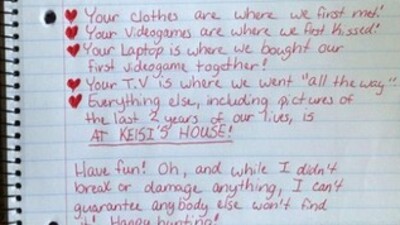 Your clothes are where we first met!
Your videogames are where we first kissed!
Your Laptop is where we bought our
first videogame together!
Your T.V is where we went "all the way"
Everything else, including pictures of
the last 2 years of our lives, is
AT KEISI'S HOUSE!
Have fun! Oh, and while I didn't
break or damage anything, I can't
guarantee anybody else won't find
it! Happy hunting!